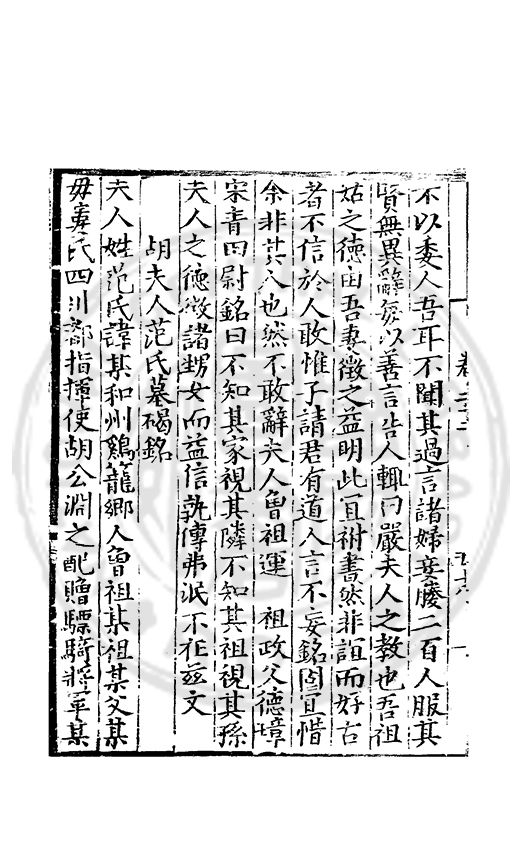 不以委人吾耳不聞其過言諸婦妾媵二百人服其
賢無異辭每以善言告人輒曰嚴夫人之教也吾祖
姑之德由吾妻徵之益明此宜祔書然非誼而好古
者不信於人敢惟予請君有道人言不妄銘固宜惜
余非其人也然不敢辭夫人曾祖運 祖政父德璋
宋青田尉銘曰不知其家視其隣不知其祖視其孫
夫人之德徵諸甥女而益信孰傳弗泯不在茲文
胡夫人范氏墓碣銘
夫人姓范氏諱某和州鷄籠鄉人曾祖某祖某父某
毋竇氏四川都指揮使胡公淵之配贈驃騎將軍某